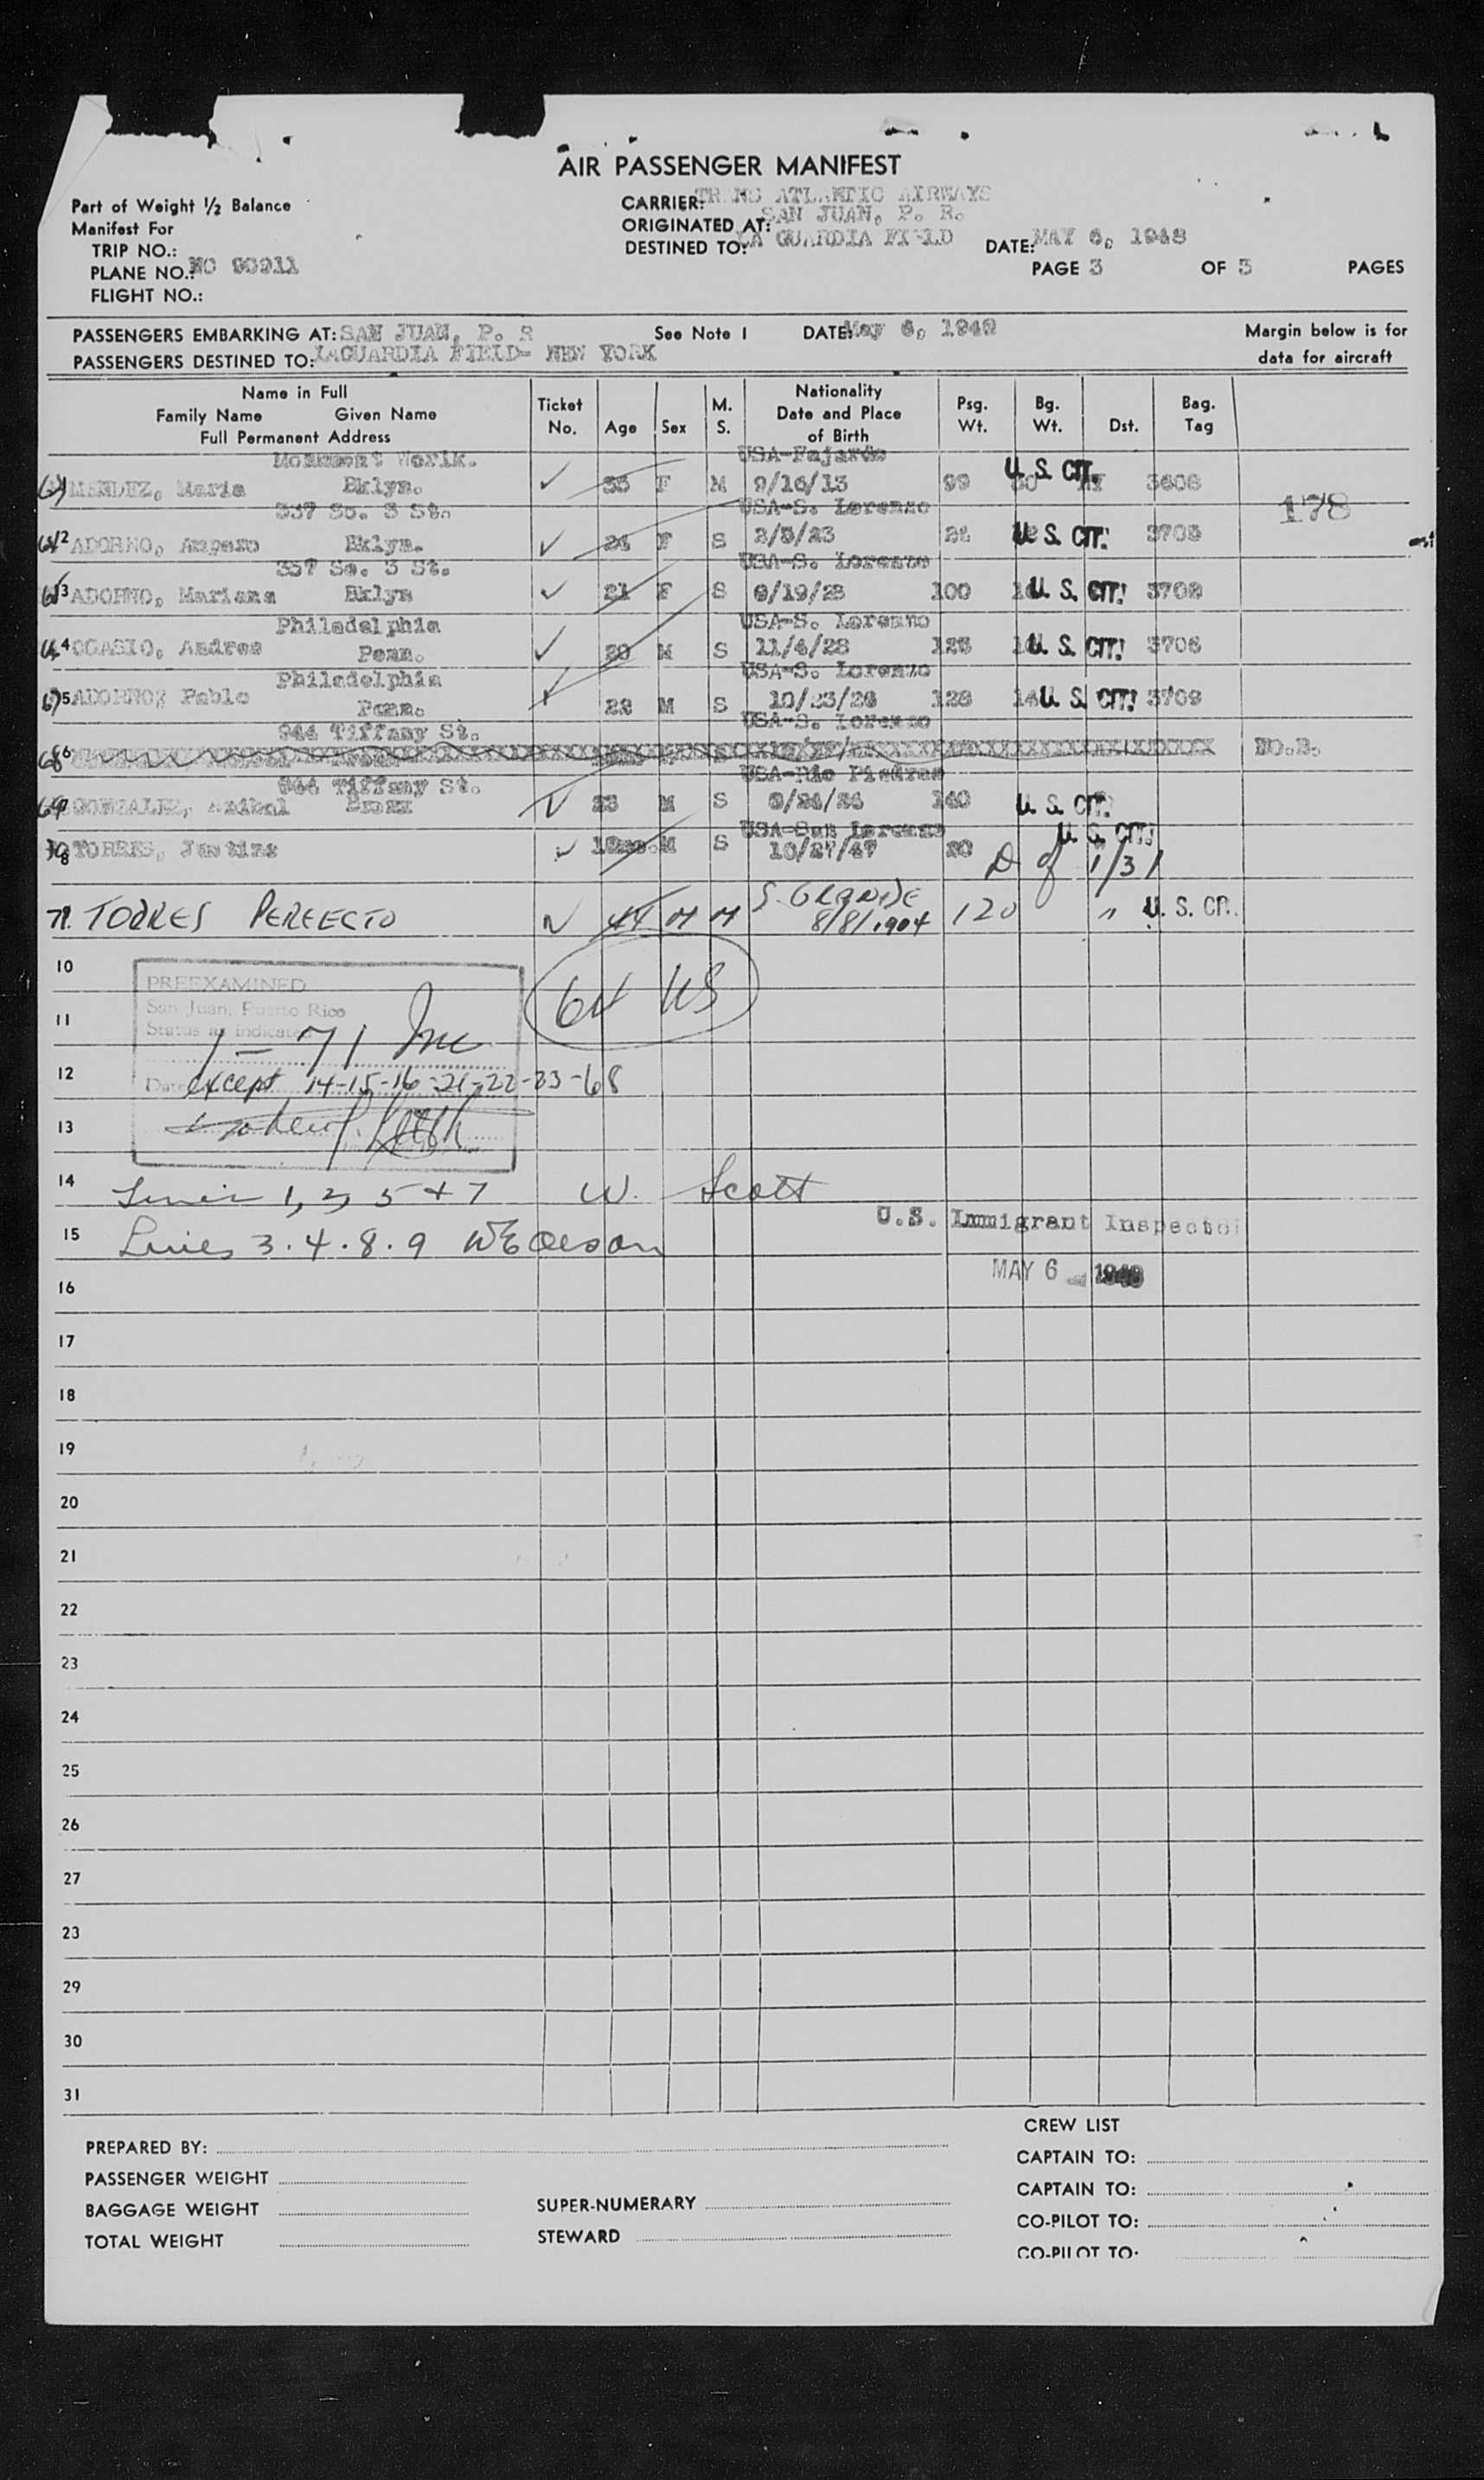 AIR PASSENGER MANIFEST
Part of Weight 1/2 Balance
Manifest For
TRIP NO.:
PLANE NO.: NC 90911
FLIGHT NO.:
CARRIER: TRANS ATLANTIC AIRWAYS
ORIGINATED AT: SAN JUAN, P. R.
DESTINED TO: LA GUARDIA FIELD
DATE: MAY 6, 1948
PAGE 3 OF 3 PAGES
PASSENGERS EMBARKING AT: SAN JUAN, P. R
See Note 1
DATE: May 6, 1948
PASSENGERS DESTINED TO: LAGUARDIA FIELD- NEW YORK
Margin below is for
data for aircraft
Name in Full
Family Name Given Name
Full Permanent Address
Ticket
No.
Age
Sex
M.
S.
Nationality
Date and Place
of Birth
Psg.
Wt.
Bg.
Wt.
Dst.
Bag.
Tag
USA-Fajardo
MENDEZ, Maria Bklyn. 33 F M 9/16/13 99 U. S. CIT. 3608
178
337 So. 3 St. USA-S. Lorenzo
2 ADORNO, Amparo Bklyn. F S U. S. CIT.
337 So. 3 St. USA-S. Lorenzo
3 ADORNO, Mariana Bklyn 21 F S 100 U. S. CIT.
Philadelphia USA-S. Lorenzo
4 OCASIO, Andres Penn. M S 11/4/28 U. S. CIT. 3706
Philadelphia USA-S. Lorenzo
5 ADORNO, Pablo Penn. M S U. S. CIT.
944 Tiffany St. USA-S. Lorenzo
68 6
944 Tiffany St. USA-Rio Piedras
69 GONZALEZ, Anibal Bronx M S 140 U. S. CIT.
USA-San Lorenzo
8 TORRES, Justino M S 10/27/47 20 U. S. CIT.
D of 1/31
71. TORRES PERFECTO 44 M M S. GRANDE 8/8/1904 120 " U. S. CIT.
10
64 US
PREEXAMINED
San Juan, Puerto Rico
Status as indicated
11
1 - 71 Inc
12
Date except 14-15-16-21-22-23-68
13
14
Lines 1, 2, 5 + 7 W. Scott
U.S. Immigrant Inspector
15
Lines 3. 4. 8. 9
MAY 6 1948
16
17
18
19
20
21
22
23
24
25
26
27
23
29
30
31
PREPARED BY:
PASSENGER WEIGHT
BAGGAGE WEIGHT
TOTAL WEIGHT
SUPER-NUMERARY
STEWARD
CREW LIST
CAPTAIN TO:
CAPTAIN TO:
CO-PILOT TO:
CO-PILOT TO: